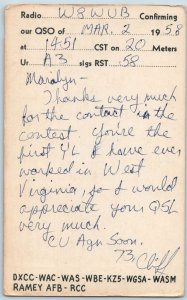 Radio W8WUB Confirming
our QSO of MAR. 2 1958
at 1451 CST on 20 Meters
Ur A3 sigs RST 58
Marilyn-
Thanks very much
for the contact in the
contest. You're the
first YL I have ever
worked in West
Virginia, so I would
appreciate your QSL
very much.
CU Agn Soon.
73 Cliff
DXCC-WAC-WAS-WBE-KZ5-WGSA-WASM
RAMEY AFB-RCC